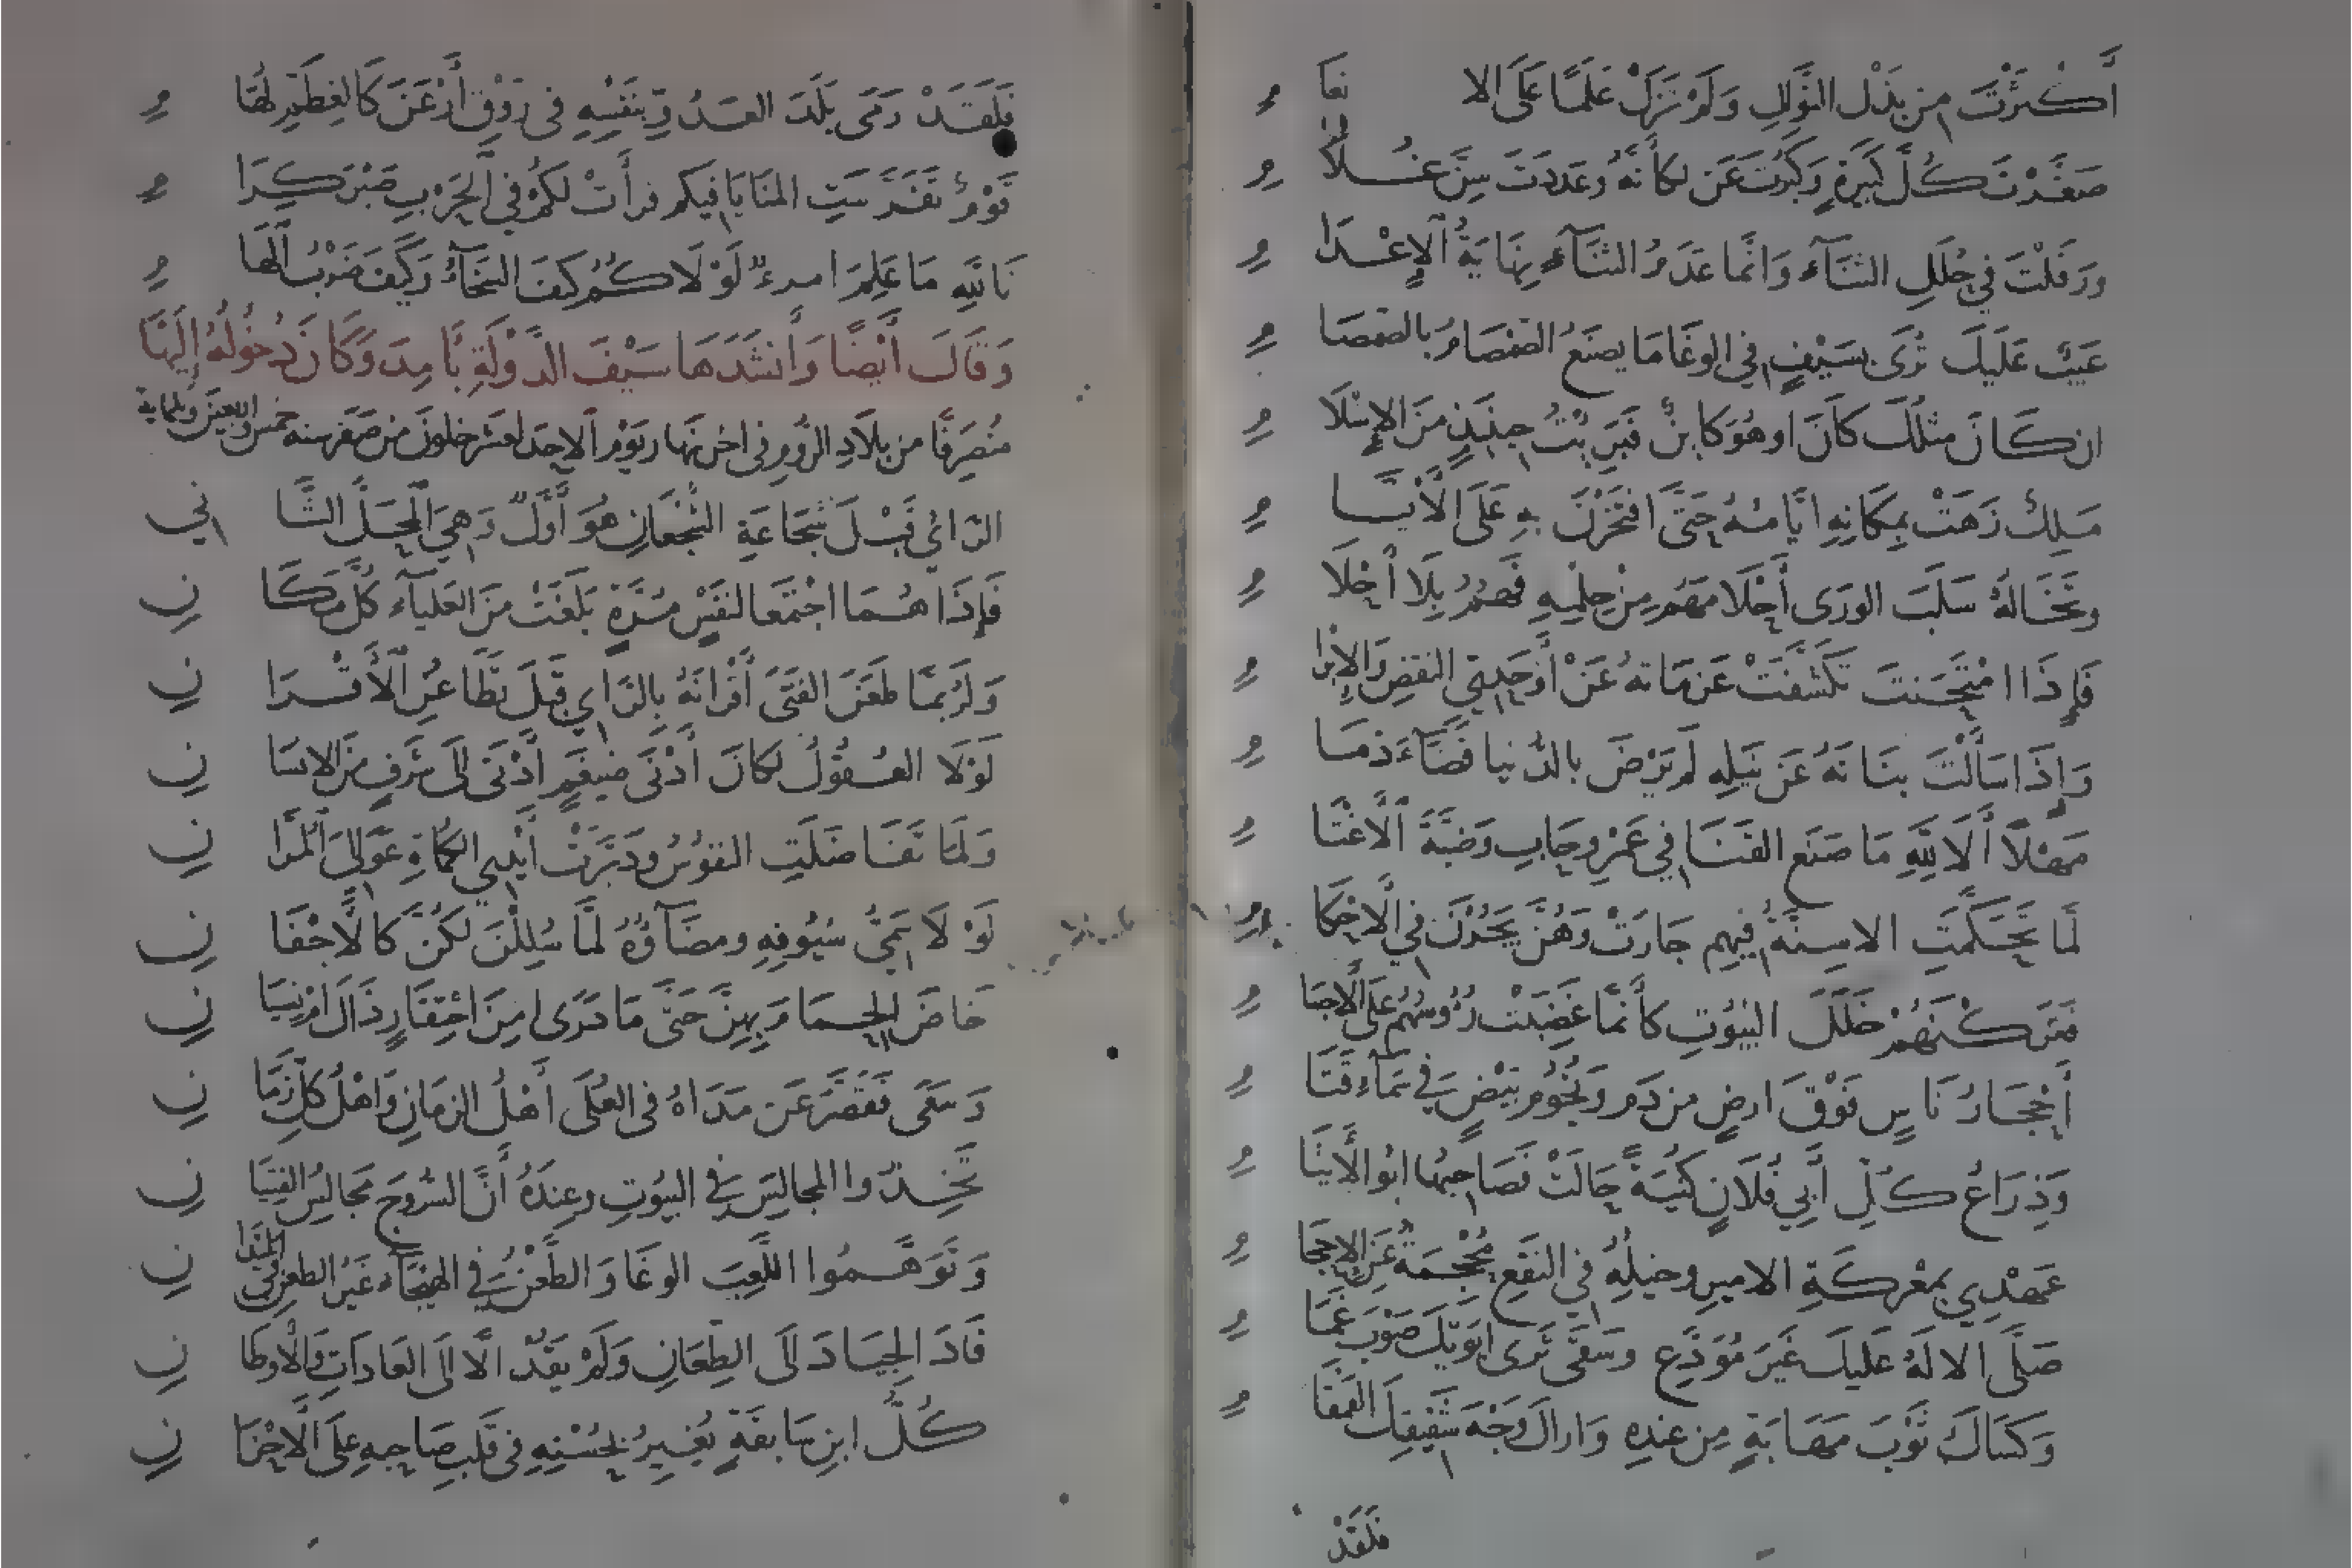 أَكْثَرْتَ مِن بَذْلِ النَّوَالِ وَلَمْ تَزَلْ عَلَمًا عَلَى الا نعَا مِ
صَغَّرْتَ كُلَّ كَبِيرَةٍ وَكَبُرْتَ عَن لكأنَّهُ وَعَدَدتَ سِنَّ غُلَا مِ
وَرَفَلْتَ فِي حُلَلِ الثَّنَآءِ وَانَّما عَدَمُ الثَّنَآءِ نِهَايَةُ الإِعْدَا مِ
عَيبٌ عَلَيكَ تُرَى بِسَيْفٍ فِي الوغَا مَا يصنَعُ الصَّمْصَامُ بالصَّمصَا مِ
ان كَانَ مثلُكَ كَانَ او هُوَ كَائنٌ فَبَرِيْتُ حِينَئِذٍ مِنَ الإِسْلَا مِ
مَلِكٌ زَهَتْ بِمكَانِهِ ايَّامُهُ حَتَّى افتَخَرْنَ بِهِ عَلَى الأَيَّا مِ
وتَخَالُهُ سَلَبَ الورَى أَحْلَامَهُم مِنْ حِلْمِهِ فَهُمُ بِلَا أَحْلَا مِ
فَإِذَا امْتُحِنتَ تَكَشَّفَتْ عَزَمَاتهُ عَنْ أَوْحَدِيِّ النقضِ وَالإِبْرَا مِ
وَإِذَا سَأَلْتَ بنَانَهُ عَن نَيلِهِ لَم يَرْضَ بالدُّنيا قَضَآءَ ذمَا مِ
مَهْلًا أَلَا لِلَّهِ مَا صَنَع القَنَا فِي عَمْرِو حَابِ وَضَبَّةَ الأَغْتَا مِ
لَمَا تَحَكَّمَتِ الاسِنَّةُ فِيهِم جَارَتْ وَهُنَّ يَجُرْنَ فِي الاحكَا مِ
فَتَركْنَهُمْ خَلَلَ البُيُوتِ كأَنمَّا غَضِبَتْ رُؤُوسُهُم عَلَى الأَجسَا مِ
أَحْجَارُ نَاسٍ فَوْقَ ارضٍ مِن دَمٍ وَنُجُومُ بَيْضٍ فِي سَمَآءِ قَتَا مِ
وَذِرَاعُ كُلِّ أَبِي فُلَانٍ كُنْيَةً حَالَتْ فَصَاحِبُها ابُو الأَيتَا مِ
عَهْدِي بِمَعْركَةِ الاميرِ وَخيلُهُ فِي النَقْعِ مُحْجِمَةٌ عَنِ الإِحجَا مِ
صَلَّى الالَهُ عَلَيكَ غَيرَ مُوَدَّعٍ وسَقَى ثَرَى ابَوَيْكَ صَوْبَ غَمَا مِ
وَكَسَاكَ ثَوْبَ مَهَابَةٍ مِن عندِهِ وَاراكَ وَجْهَ شَقِيقِكَ القَمقَا مِ
فلَقَدْ
فَلَقَدْ رَمَى بَلَدَ العَدُوِّ بِنَفْسِهِ فِي رَوْقِ أَرْعَنَ كَالغِطَمِّ لُهَا مِ
قَوْمٌ تَفَرَّسَتِ المنَايَا فِيكم فرأَتْ لكمُ فِي الحَرْبِ صَبْرَ كِرَا مِ
تَاللَّهِ مَا عَلِمَ امرءٌ لَوْلَاكُمُ كَيفَ السَّخَآءُ وَكَيفَ ضَرْبُ الْهَا مِ
وَقَالَ أَيْضًا وَأَنشَدَهَا سَيْفَ الدَّوْلَةِ بآمِدَ وَكَانَ دُخُولُهُ إِلَيْهَا
مُنصَرِفًا من بِلَادِ الرُّومِ فِي اخر نهَار يَوْم الاحَد لعشر خلونَ مِن صَفَر سنه خمس واربعين وثلثمايه
الرَّأيُ قَبْلَ شَجَاعَةِ الشُّجْعَانِ هُوَ أَوَّلٌ وَهِيَ الْمَحَلُّ الثَّا نِي
فَإِذَا هُمَا اجْتَمَعَا لنَفْسٍ مُرَّةٍ بَلَغَتْ مِنَ العَليآءِ كُلَّ مَكَا نِ
وَلَرُبَّمَا طَعَنَ الفَتَى أَقْرَانَهُ بِالرَّاي قَبْلَ تَطَاعُنِ الأَقْرَا نِ
لَوْلَا العُقُوْلُ لكَانَ أَدْنَى ضيغَمٍ أَدْنَى الَى شَرَفٍ مِنَ الانسَا نِ
وَلَمَا تَفَاضَلَتِ النفوسُ ودَبَّرَتْ أَيْدِي الكُمَاةِ عَوَالِيَ المُرَّا نِ
لَوْلَا سَمِيُّ سُيُوفِهِ ومضَآؤُهُ لَمَّا سُلِلْنَ لكُنَّ كالأَجْفَا نِ
خَاضَ الحِمَامَ بِهِنَّ حَتَّى مَا دُرَى امِنَ احْتِقَارٍ ذَاكَ امْ نِسيَا نِ
وَسَعَى فَقَصَّرَ عَن مَدَاهُ فِي العُلَى أَهْلُ الزمَانِ وَاهْلُ كُلِّ زمَا نِ
تَخِذُوا المجالِسَ فِي البيُوتِ وعِندَهُ أَنَّ السُّرُوجَ مَجَالِسُ الفِتيَا نِ
وَتَوَهَّمُوا اللَّعِبَ الوغَا وَالطَّعْنُ فِي الهَيْجَآءِ غَيْرُ الطعنِ فِي المَيْدَا نِ
قَادَ الجِيَادَ الَى الطِّعَانِ وَلَمْ يَقُدْ الَّا الَى العَادَاتِ وَالأوطَا نِ
كُلَّ ابنِ سَابقَةٍ يُغِيرُ بِحُسْنِهِ فِي قَلبِ صَاحِبِهِ عَلَى الأحْزَا نِ